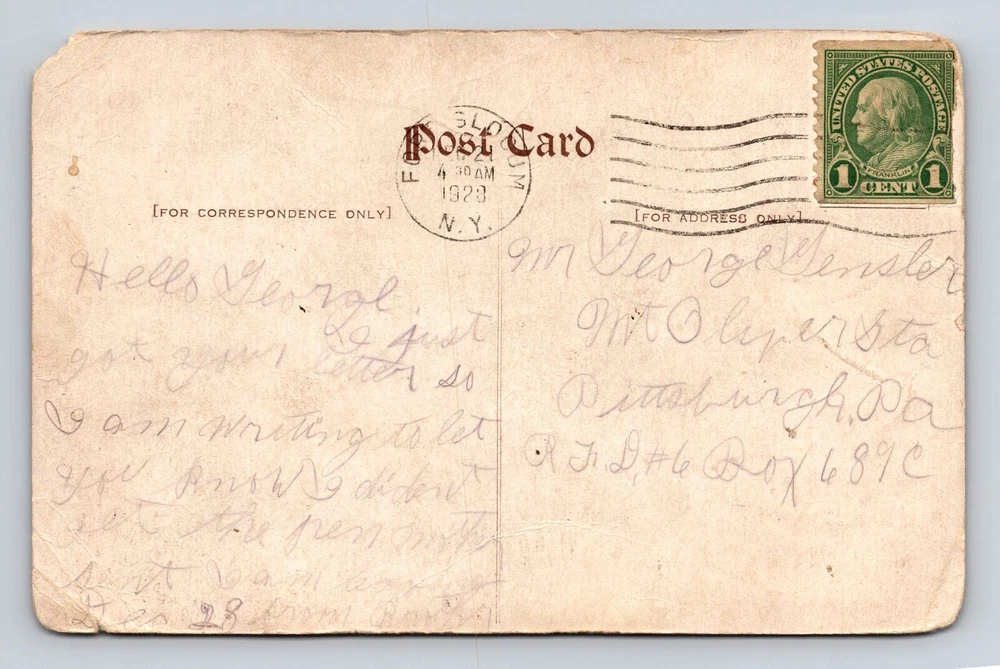 Post Card
FORT SLOCUM
21
4 30 AM
1928
N.Y.
UNITED STATES POSTAGE
FRANKLIN
1 CENT 1
[FOR CORRESPONDENCE ONLY]
[FOR ADDRESS ONLY]
Hello George.
I just
got your letter so
I am writing to let
you know I dident
get the pen
sent I am
Dec 28 from
Mr George Gensler
Mt Oliver Sta
Pittsburgh, Pa
R F D, #6 Box 689C